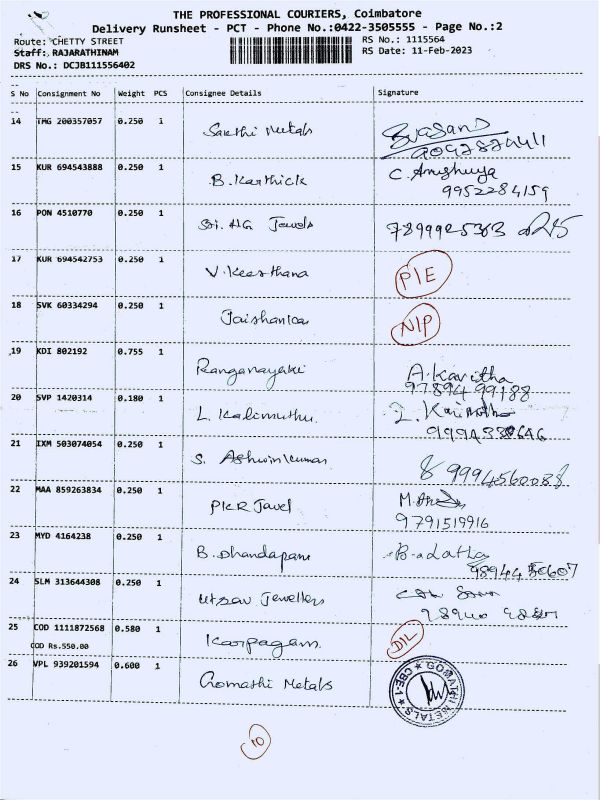 THE PROFESSIONAL COURIERS, Coimbatore
Delivery Runsheet - PCT - Phone No.:0422-3505555 - Page No.:2
Route: CHETTY STREET
RS No.: 1115564
Staff: RAJARATHINAM
RS Date: 11-Feb-2023
DRS No.: DCJB111556402
S No Consignment No Weight PCS Consignee Details Signature
14 TMG 200357057 0.250 1 Sakthi Metals
15 KUR 694543888 0.250 1 B. Karthick C. Anushuya
9952284159
16 PON 4510770 0.250 1 Sri. HG Jewels
17 KUR 694542753 0.250 1 V. Keerthana P/E
18 SVK 60334294 0.250 1 Jaishanka N/P
19 KDI 802192 0.755 1 Ranganayaki A. Kavitha
97894 99188
20 SVP 1420314 0.180 1 L. Kalimuthu.
21 IXM 503074054 0.250 1 S. Ashwinkumar 9994560088
22 MAA 859263834 0.250 1 PKR Jewel
9791519916
23 MYD 4164238 0.250 1 B. Dhandapani
24 SLM 313644308 0.250 1 Utsav Jewellers
25 COD 1111872568 0.580 1 Karpagam. D/L
COD Rs.550.00
26 VPL 939201594 0.600 1 Gomathi Metals
GOMATHI METALS ★ CBE-1 ★
10